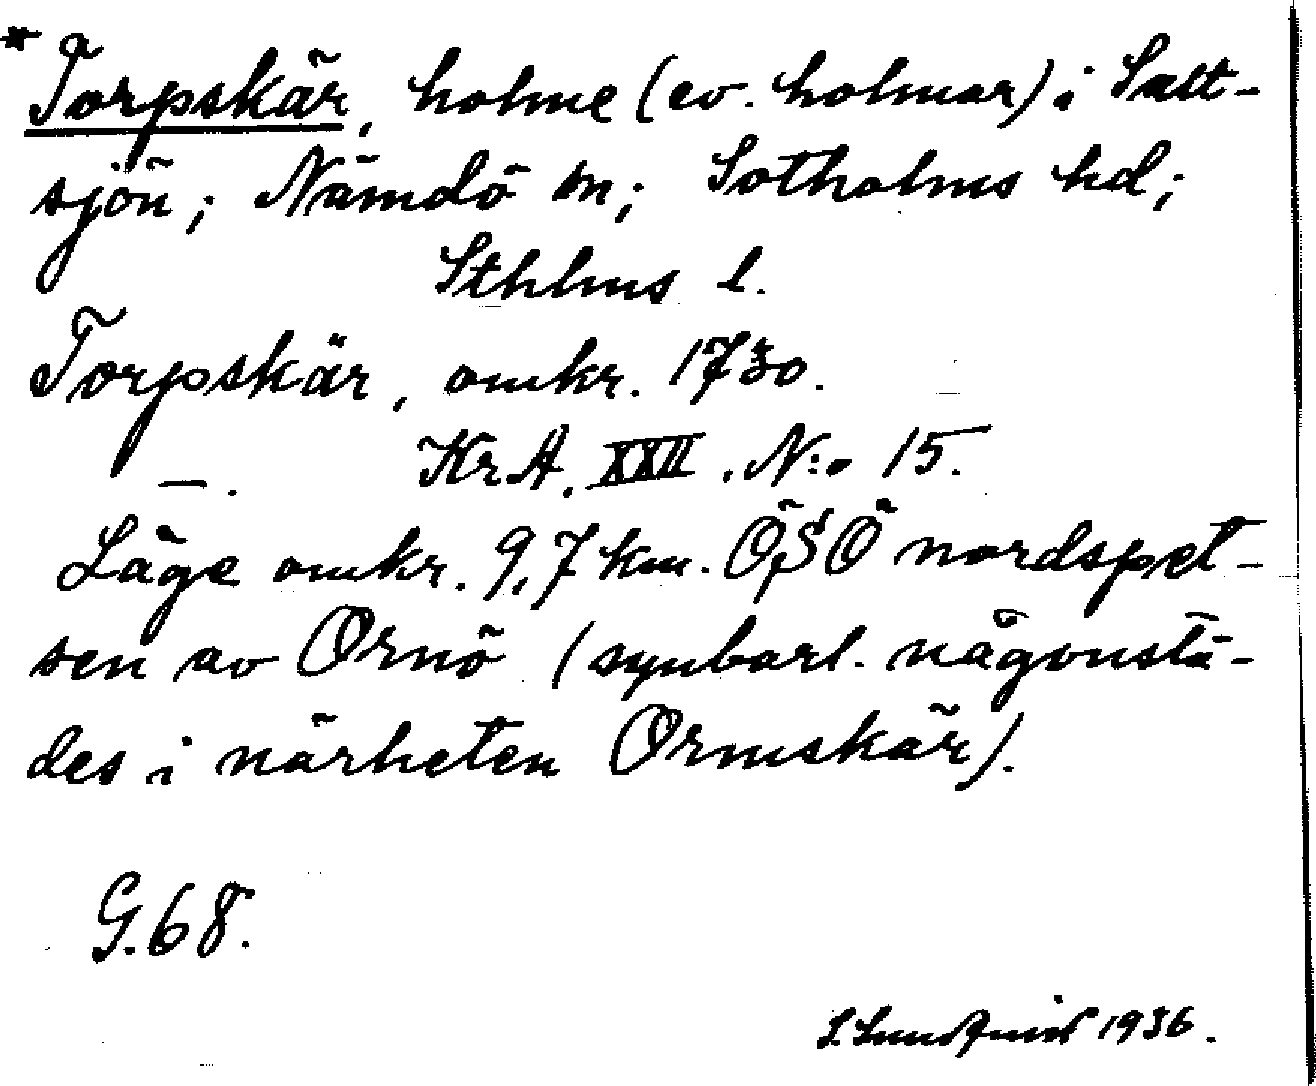 * Torpskär, holme (ev. holmar) i Salt-
sjön; Nämdö sn; Sotholms hd;
Sthlms l.
Torpskär, omkr. 1730.
Kr.A. XXII. N:o 15.
—.
Läge omkr. 9,7 km. ÖSÖ nordspet-
sen av Ornö (synbarl. någonstä-
des i närheten Ormskär).
G.68.
S. Lundquist 1936.